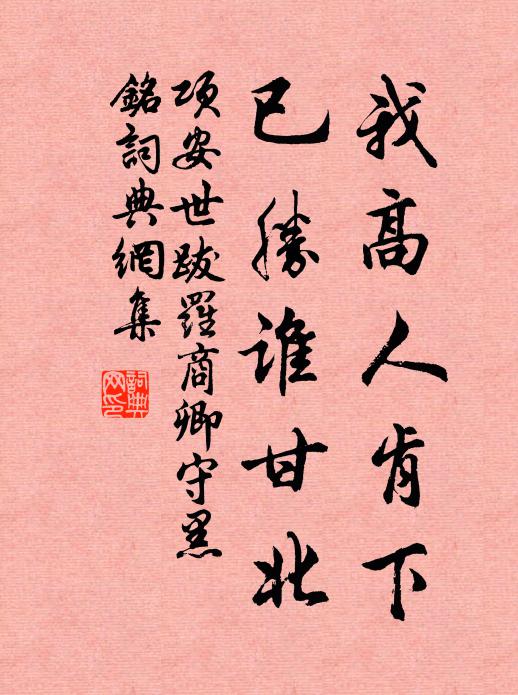 我高人肯下
已勝誰甘北
項安世跋羅商卿守黑
銘詞典網集
詞典網印